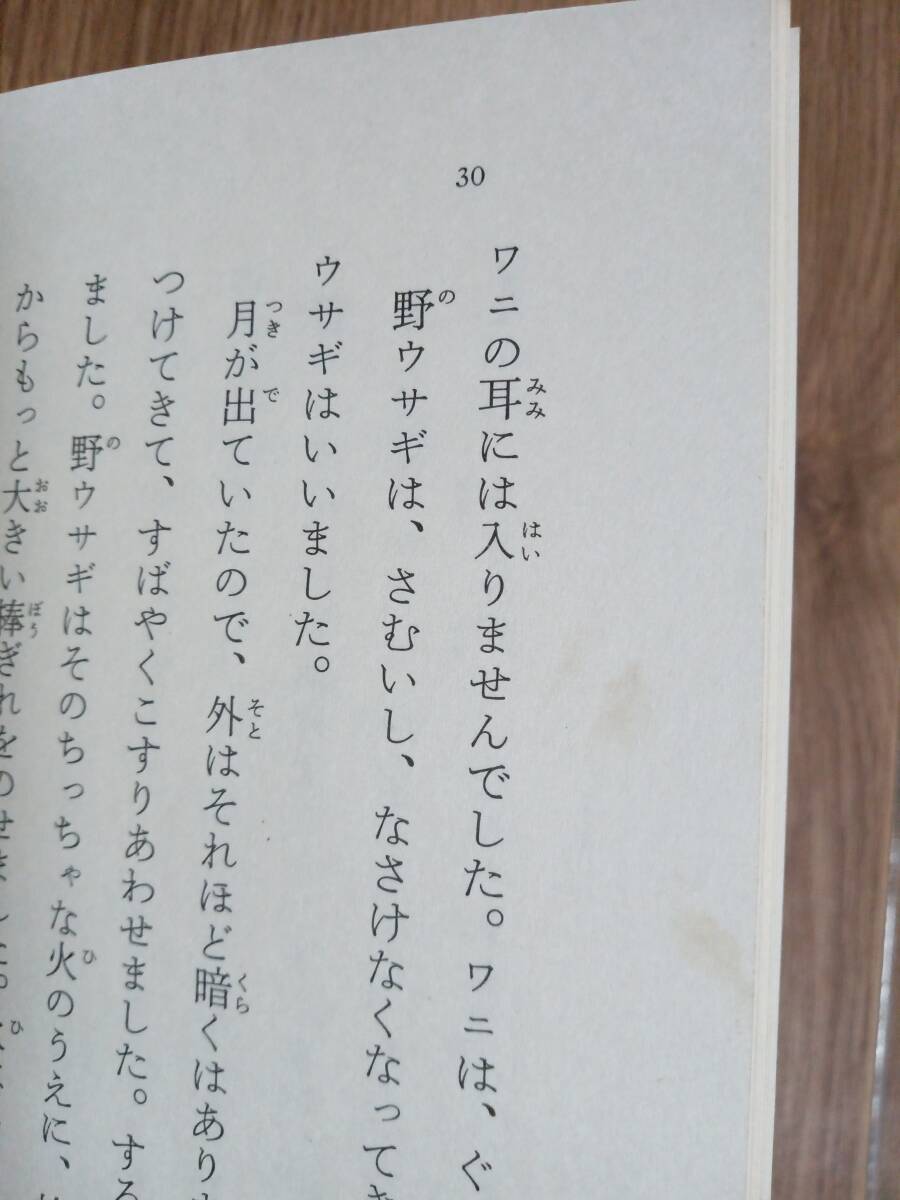 30
ワニの耳には入りませんでした。ワニは、ぐ
野ウサギは、さむいし、なさけなくなってき
ウサギはいいました。
月が出ていたので、外はそれほど暗くはあり
つけてきて、すばやくこすりあわせました。する
ました。野ウサギはそのちっちゃな火のうえに、
からもっと大きい棒ぎれをのせました。